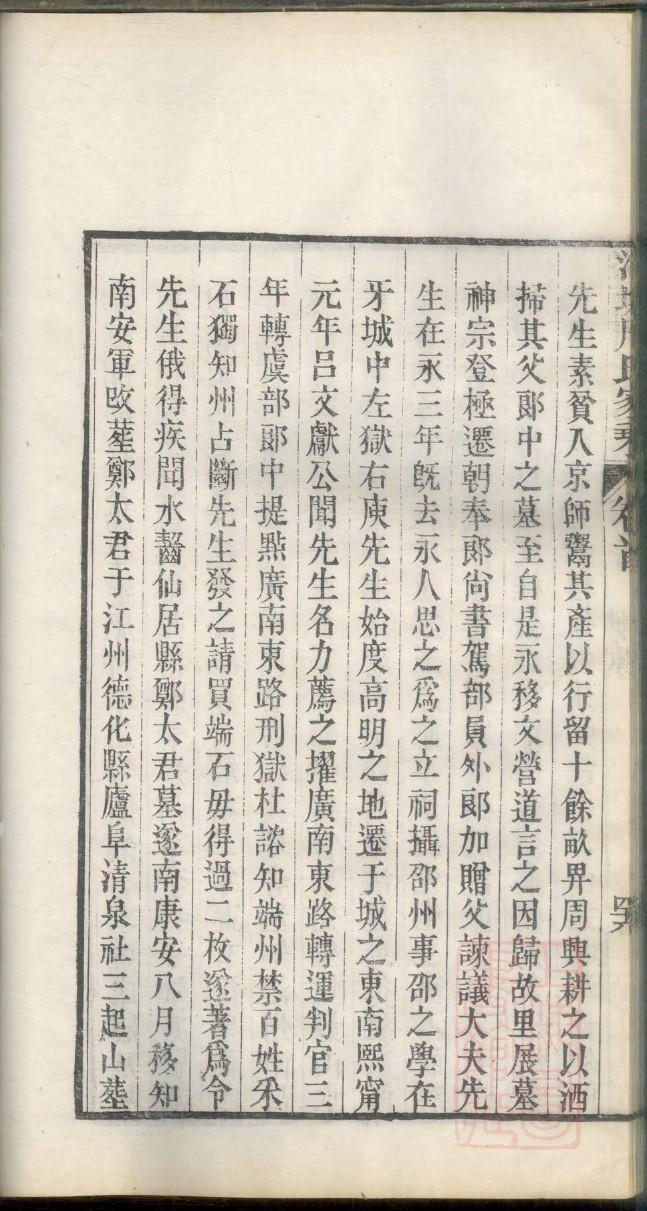 周氏家乘 卷首
先生素貧入京師鬻其產以行留十餘畝畀周興耕之以洒
掃其父郞中之墓至自是永移文營道言之因歸故里展墓
神宗登極遷朝奉郞尙書駕部員外郞加贈父諫議大夫先
生在永三年旣去永人思之爲之立祠攝邵州事邵之學在
牙城中左獄右庾先生始度高明之地遷于城之東南熙甯
元年呂文獻公聞先生名力薦之擢廣南東路轉運判官三
年轉虞部郞中提點廣南東路刑獄杜諮知端州禁百姓采
石獨知州占斷先生發之請買端石毋得過二枚遂著爲令
先生俄得疾聞水齧仙居縣鄭太君墓遂南康安八月移知
南安軍改塟鄭太君于江州德化縣廬阜清泉社三起山塟